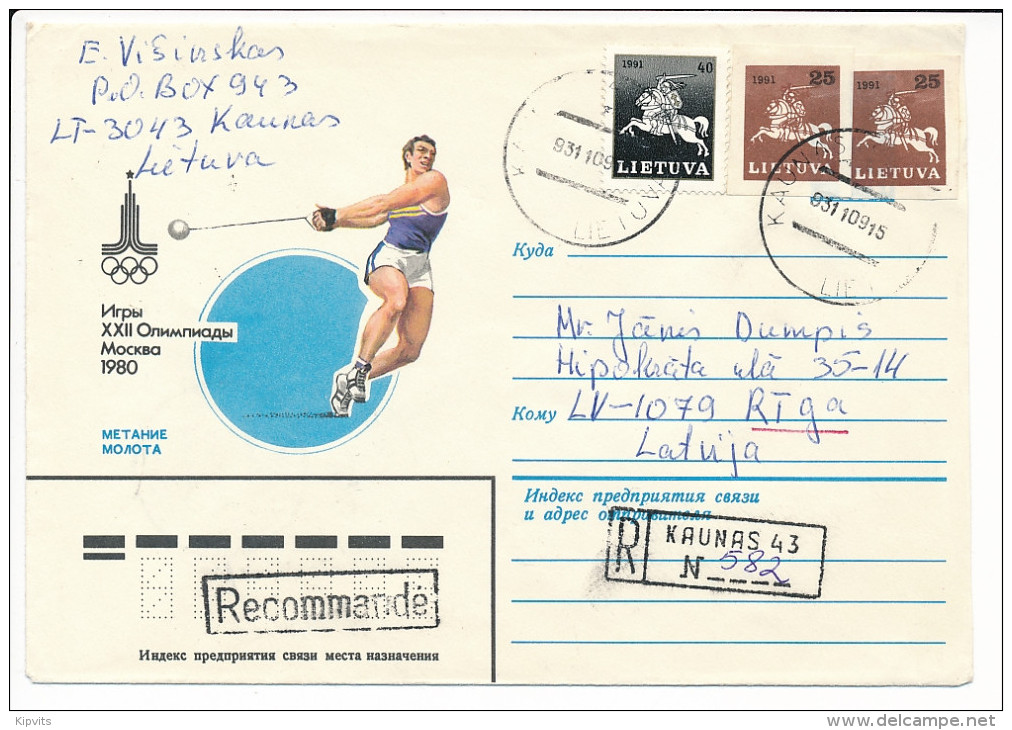 E. Višinskas
P.O. BOX 943
LT-3043 Kaunas
Lietuva
1991 40
LIETUVA
1991 25
LIETUVA
1991 25
LIETUVA
931109
LIETUVA
KAUNAS
93110915
LIE
Игры
XXII Олимпиады
Москва
1980
МЕТАНИЕ
МОЛОТА
Куда
Mr. Jānis Dumpis
Hipokrāta ielā 35-14
Кому LV-1079 Rīga
Latvija
Индекс предприятия связи
и адрес отправителя
R KAUNAS 43
N 582
Recommandé
Индекс предприятия связи места назначения
Kipvits
delcampe.net